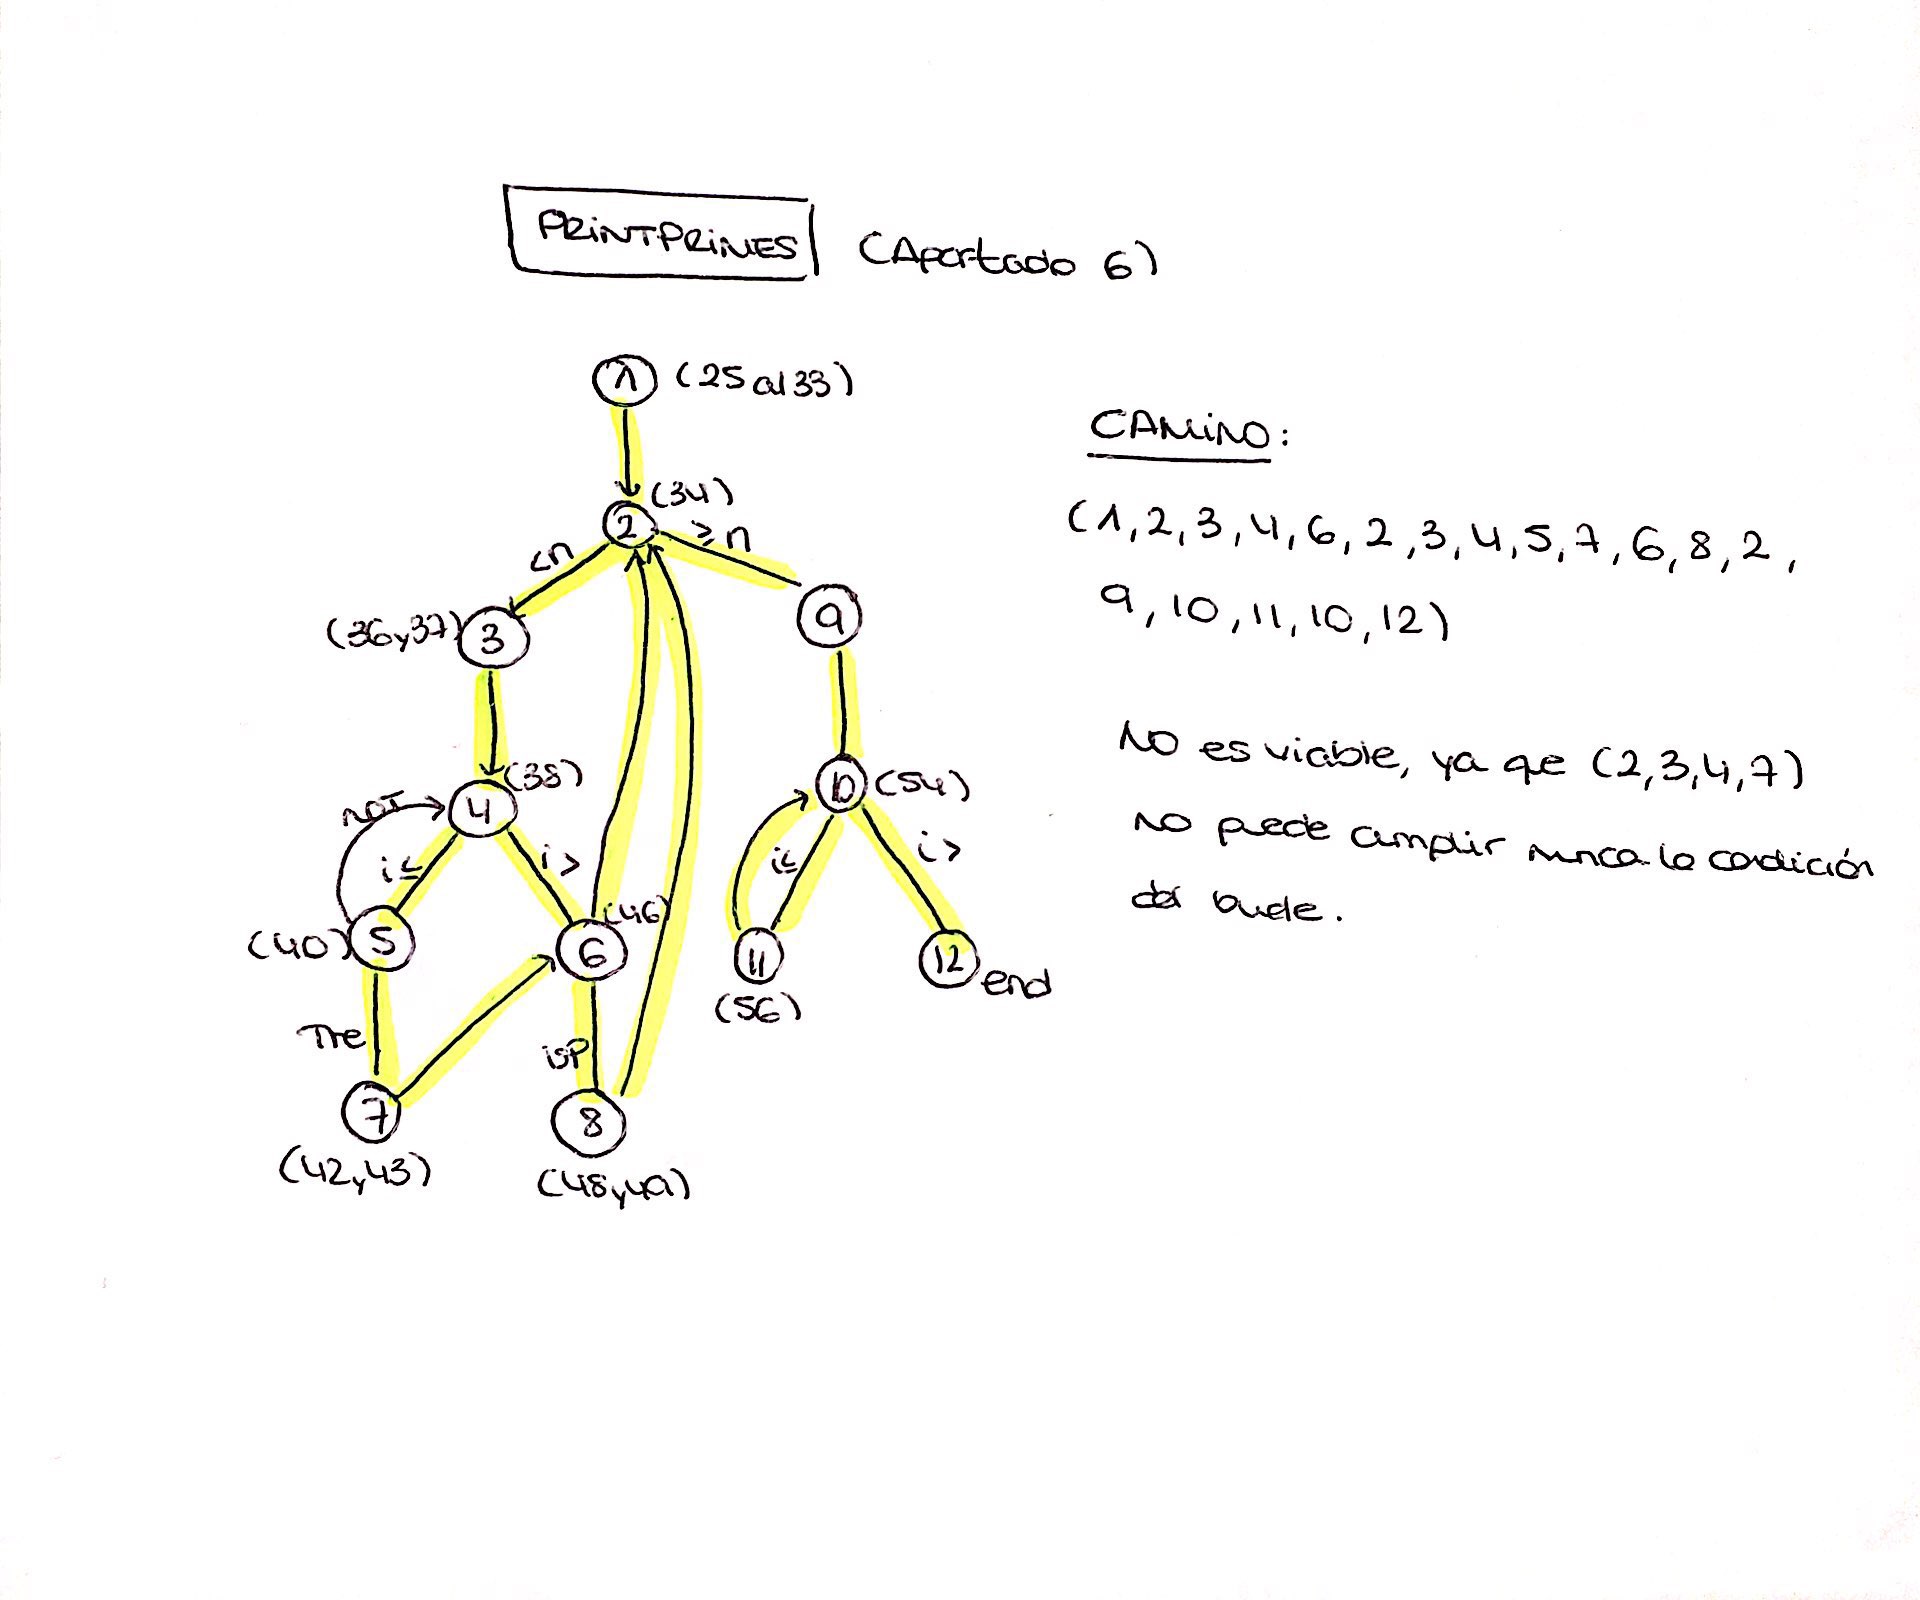 PRINTPRIMES (Apartado 6)
1 (25 al 33)
(34)
2
<n
≥n
(36y37) 3
9
(38)
4
10 (54)
not
i≤
i>
i≤
i>
(46)
(40) 5
6
11
12 end
(56)
Tre
isP
7
8
(42y43)
(48y49)
CAMINO:
(1,2,3,4,6,2,3,4,5,7,6,8,2,
9,10,11,10,12)
No es viable, ya que (2,3,4,7)
no puede cumplir nunca la condición
del bucle.